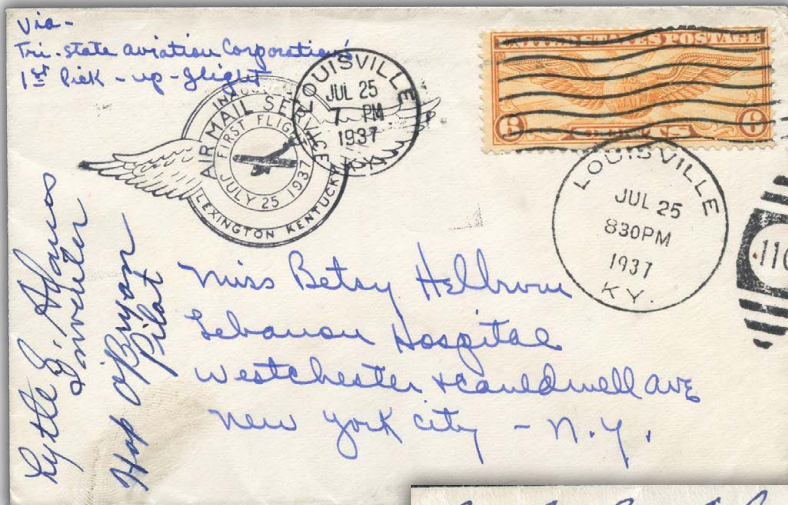 Via -
Tri-state aviation Corporation's
1st Pick-up-flight
AIRMAIL SERVICE
FIRST FLIGHT
JULY 25 1937
LEXINGTON KENTUCKY
LOUISVILLE
JUL 25
7 PM
1937
KY.
UNITED STATES POSTAGE
6 CENTS 6
LOUISVILLE
JUL 25
830PM
1937
KY.
110
Lytle S. Adams
Inventer
Hop O'Bryan
Pilot
Miss Betsy
Lebanon Hospital
Westchester & Cauldwell Ave
New York City - N.Y.